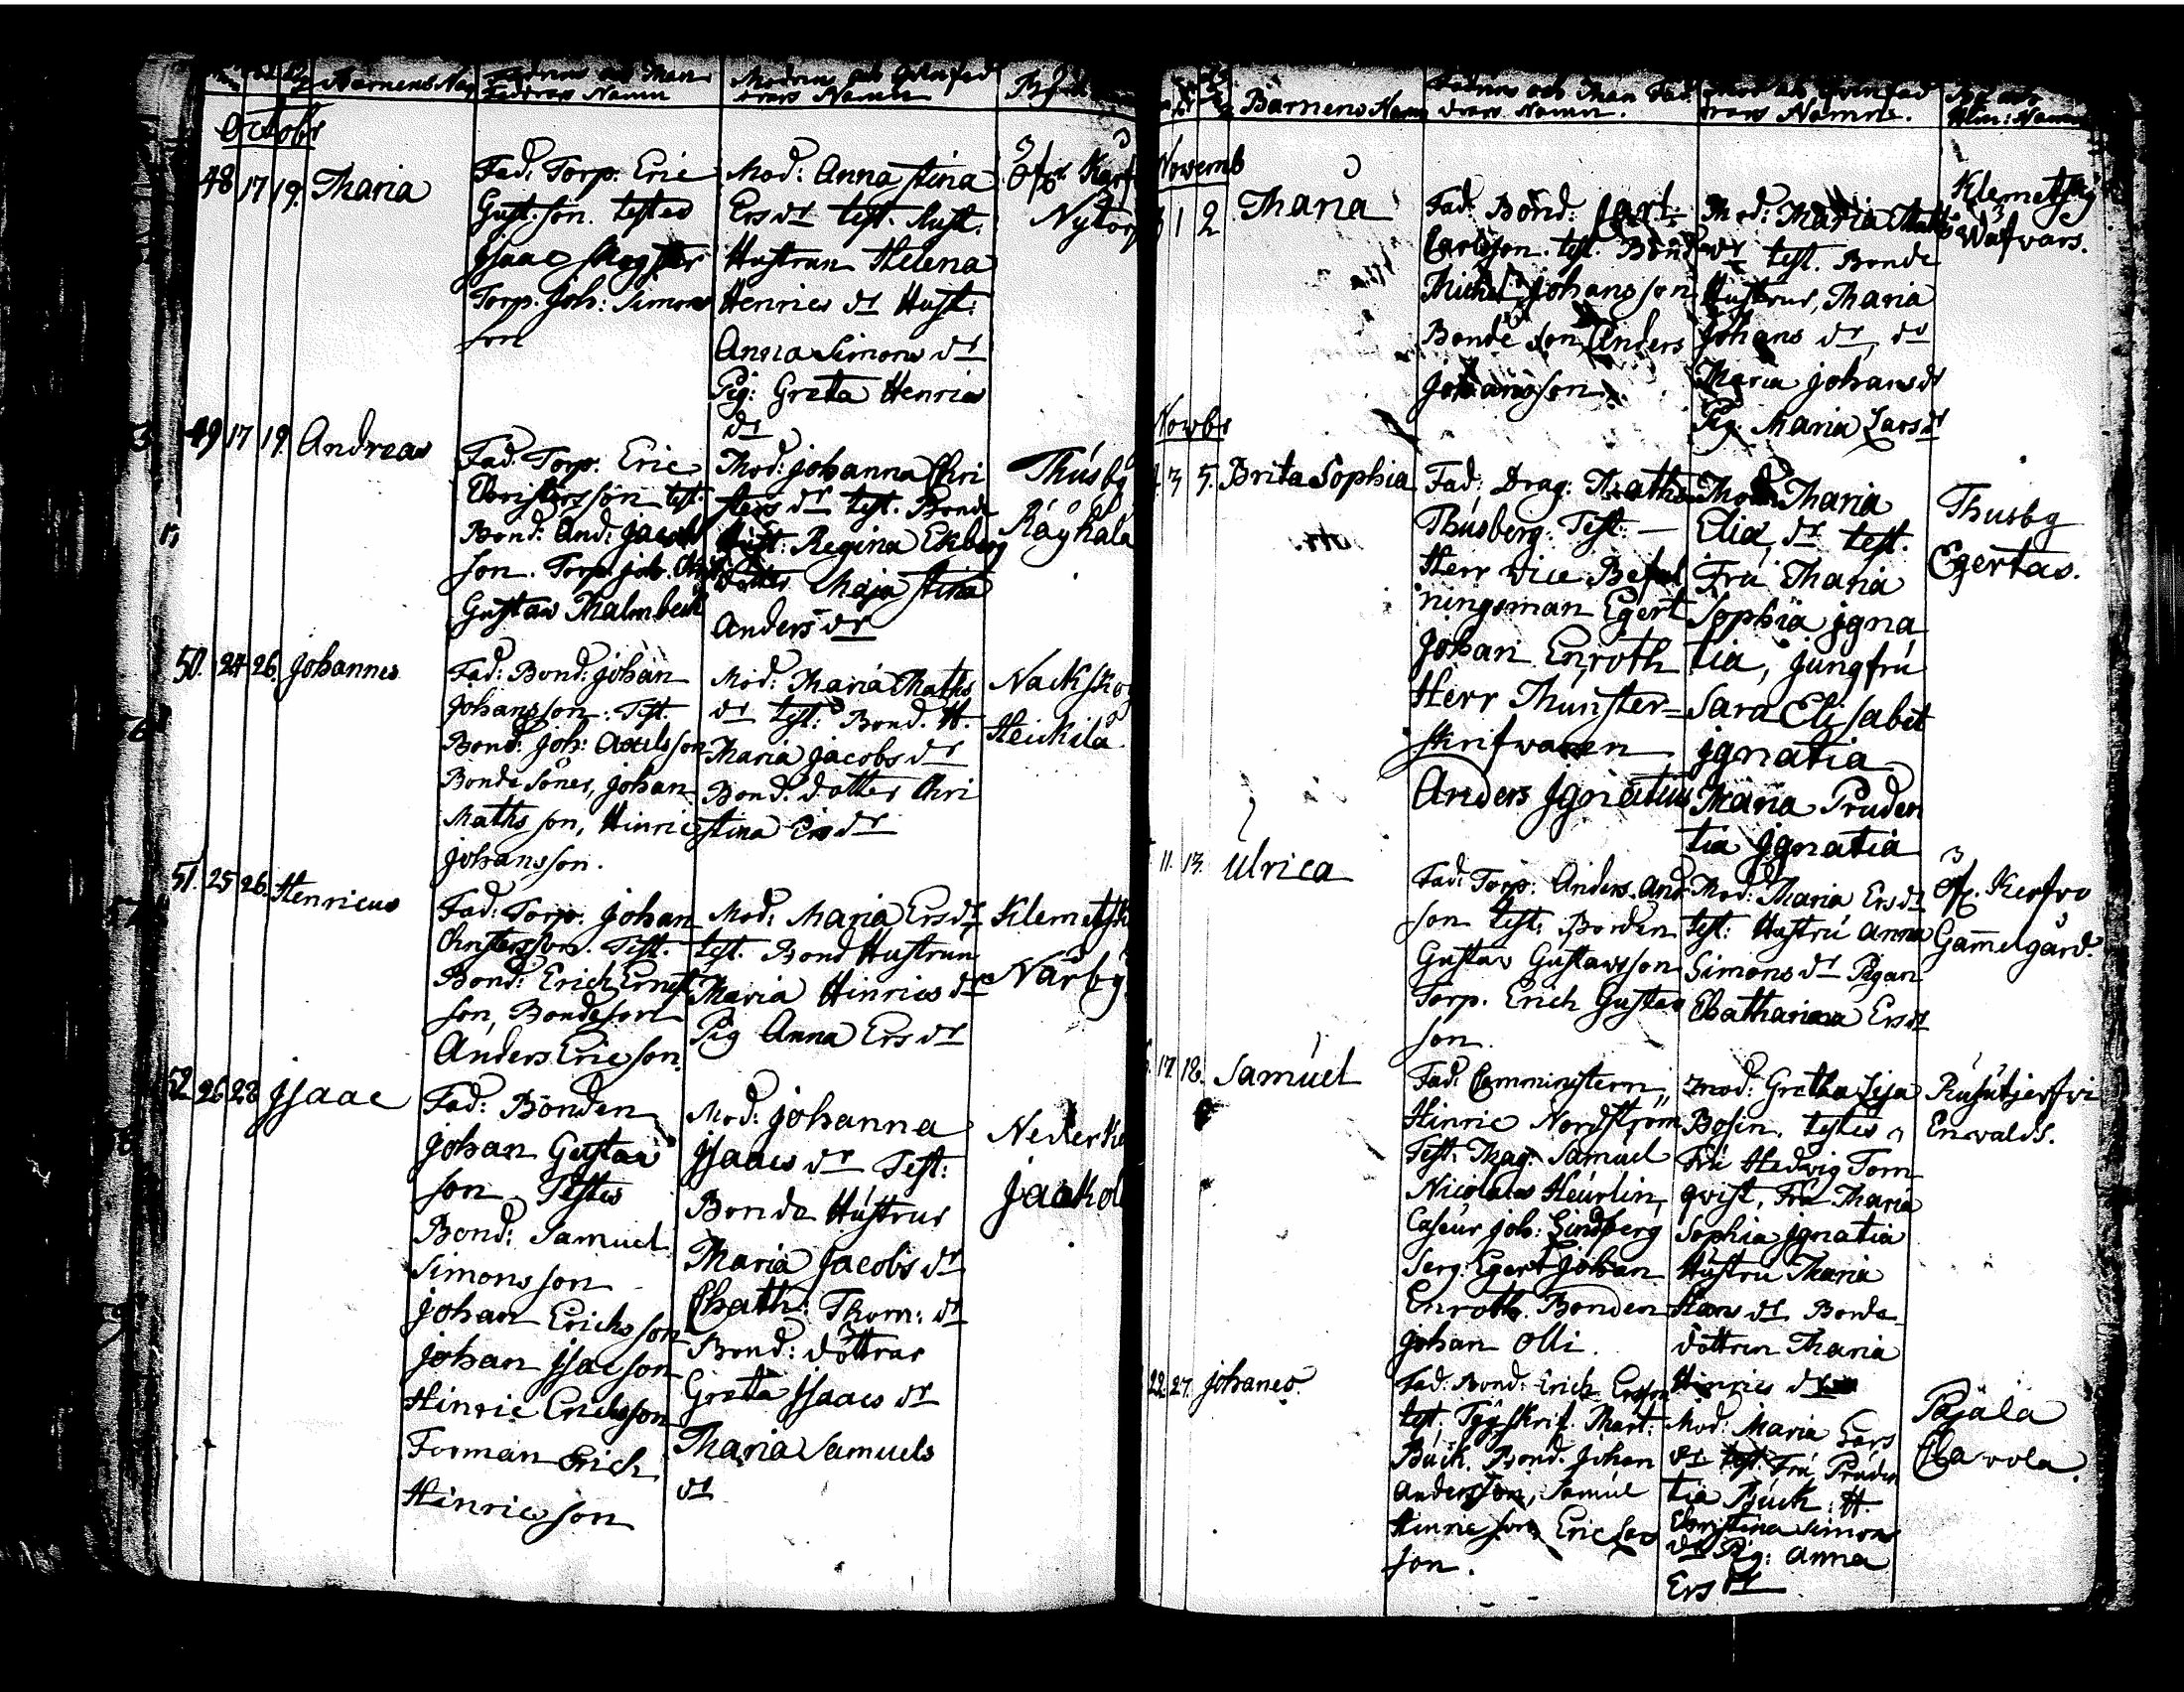 Barnens Nam
Fadrens och Man
Faddrars Namn
Modren och Qvinfad
drars Namn
Octobr
48 17 19. Maria
Fad: Torp. Eric
Gust.son. testes
Isaac
Torp. Joh: Simons
son
Mod: Anna Stina
Ers dr test. Hust.
Hustrun Helena
Henrics dr Hust:
Anna Simons dr
Pig: Greta Henrics
dr
Öfr Kerf
Nytorp
49 17 19. Andreas
Fad: Torp. Eric
Christersson test.
Bond: And: Jacob
son. Torp. Joh.
Gustav Malmbeck
Mod: Johanna Chri
sters dr test. Bonde
Hust: Regina Ekberg
Dotter Maja Stina
Anders dr
Musby
Räyhälä
50. 24 26. Johannes
Fad: Bond: Johan
Johansson: Test.
Bond: Joh: Axelsson
Bonde Söner, Johan
Maths son, Hinric
Johansson.
Mod: Maria Maths
dr test: Bond. H.
Maria Jacobs dr
Bond. dotter Chri
stina Ers dr
Nackskog
Heickilä
51. 25 26. Henricus
Fad: Torp: Johan
Christersson. Test.
Bond: Erich Ernst
son, Bondeson
Anders Ericson.
Mod: Maria Ers dr
test. Bond Hustrun
Maria Hinrics dr
Pig Anna Ers dr
Klemetsk
Närby
52. 26 28 Isaac
Fad: Bonden
Johan Gustav
son Testes
Bond: Samuel
Simons son
Johan Erichsson
Johan Isacson
Hinric Erichsson
Forman Erich
Hinricson
Mod: Johanna
Isaacs dr Test:
Bonde Hustrur
Maria Jacobs dr
Chath: Thom: dr
Bond: döttrar
Greta Isaacs dr
Maria Samuels
dr
Neder Ke
Jackol
Barnens Namn
Fadrens och Man Fad
drars Namn.
Mod och Qvinfad
drars Namn.
By och
Hem: Namn
Novemb
1 2 Maria
Fad: Bond: Carl
Carlsson. test. Bond
Michel Johansson
Bonde Son Anders
Johansson.
Mod: Maria Matts
dr test. Bonde
Hustrur, Maria
Johans dr, dr
Maria Johans dr
Pig. Maria Lars dr
Klemetskog
Wäfvars.
Novbr
3 5. Brita Sophia
Fad: Drag: Matths
Musberg. Test:
Herr Vice Befal
ningsman Egert
Johan Enroth
Herr Munster=
skrifwaren
Anders Ignatius
Mod: Maria
Elia dr test.
Fru Maria
Sophia Igna
tia, Jungfru
Sara Elisabet
Ignatia
Maria Pruden
tia Ignatia
Musby
Egertas.
11. 13. Ulrica
Fad: Torp: Anders And
son test: Bonden
Gustav Gustavsson
Torp. Erich Gustav
son.
Mod: Maria Ers dr
test: Hustru Anna
Simons dr Pigan
Chatharina Ers dr
Öf. Kerfvo
Gamelgård.
17. 18. Samuel
Fad: Comministern
Hinric Nordström
Test: Mag: Samuel
Nicolaus Heurlin,
Caseur Joh: Lindberg
Serg. Egert Johan
Enroth. Bonden
Johan Olli.
Mod: Gretha Lisa
Bosin. testes
Fru Hedwig Torn
qvist, Fru Maria
Sophia Ignatia
Hustru Maria
Hans dr Bonde
döttren Maria
Hinrics dr
Rusutjerfvi
Enwalds.
22. 27. Johanes.
Fad: Bond: Erich Ersson
test, Tygskrif. Mart:
Buck. Bond. Johan
Andersson, Samuel
Hinricson Eric Lars
son.
Mod: Maria Lars
dr test. Fru, Pruden
tia Buck: H.
Christina Simons
dr Pig: Anna
Ers dr
Päjälä
Clawola.